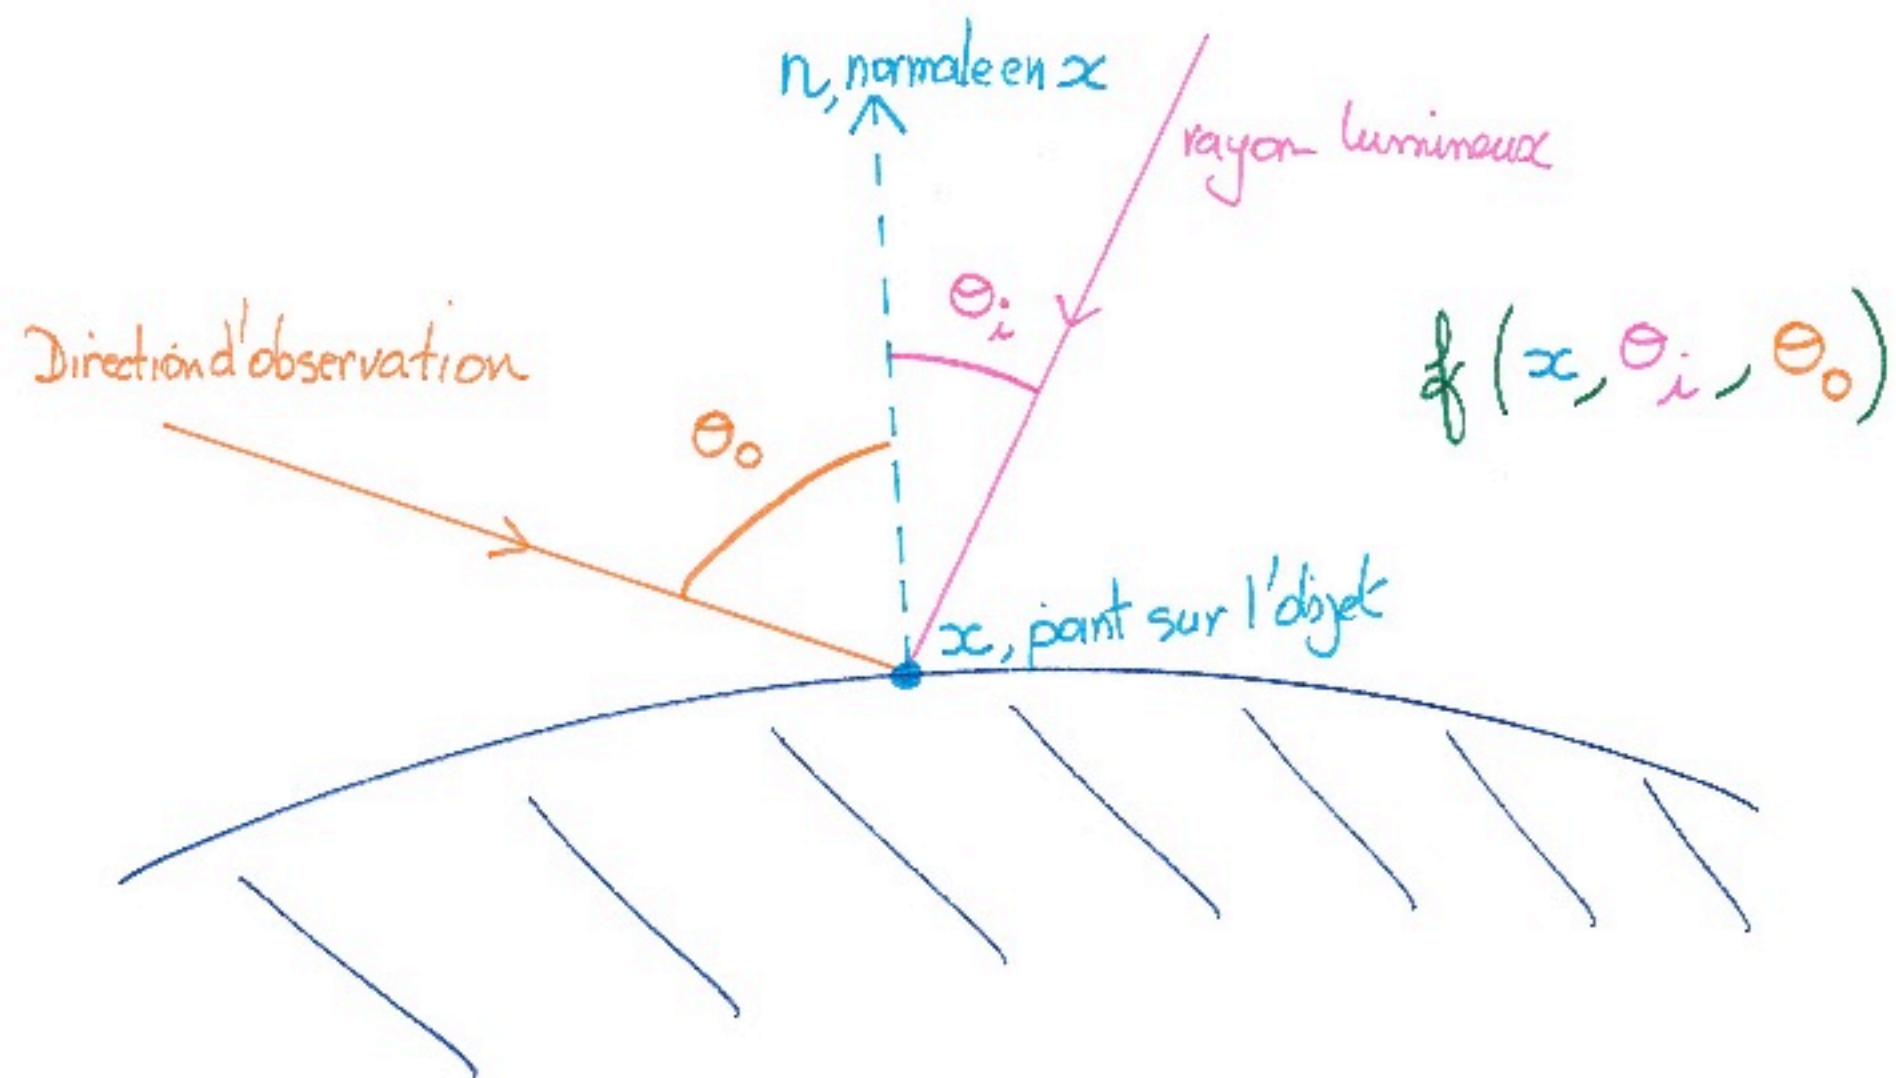 n, normale en x
rayon lumineux
θi
Direction d'observation
f(x, θi, θo)
θo
x, point sur l'objet